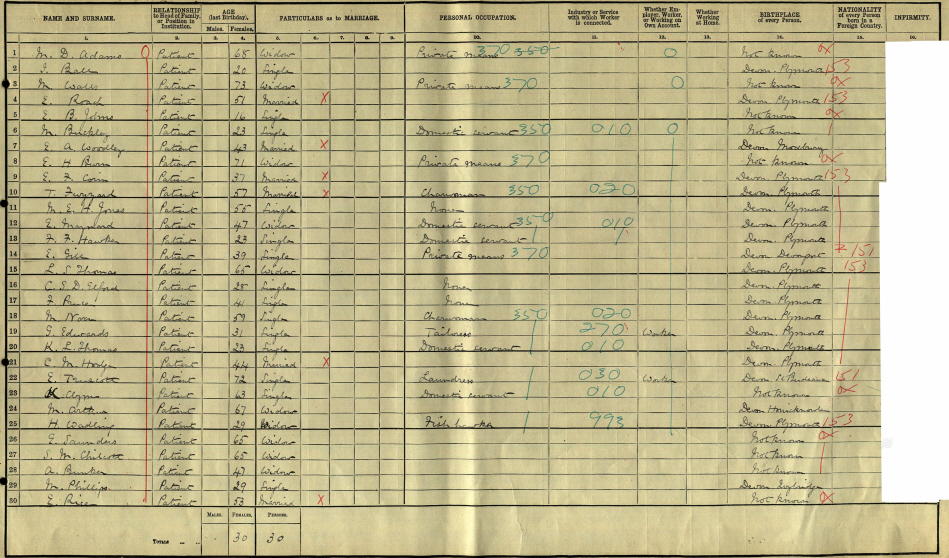 NAME AND SURNAME. RELATIONSHIP to Head of Family, or Position in Institution. AGE (last Birthday). PARTICULARS as to MARRIAGE. PERSONAL OCCUPATION. Industry or Service with which Worker is connected. Whether Employer, Worker, or Working on Own Account. Whether Working at Home. BIRTHPLACE of every Person. NATIONALITY of every Person born in a Foreign Country. INFIRMITY.
Males. Females.
1 M. D. Adams Patient 68 Widow Private means 370 350 0 Not known
2 Patient 20 Single Devon Plymouth 153
3 Patient 73 Widow Private means 370 0 Not known
4 E. Roach Patient 51 Married X Devon Plymouth 153
5 E. B. Johns Patient 16 Single Not known
6 M. Buckley Patient 23 Single Domestic servant 350 010 0 Not known
7 E. A. Woodley Patient 43 Married X Devon
8 E. H. Patient 71 Widow Private means 370 Not known
9 Patient 37 Married X Devon Plymouth 153
10 T. Fuzzard Patient 57 Married X Charwoman 350 020 Devon. Plymouth
11 M. E. H. Jones Patient 55 Single None Devon. Plymouth
12 E. Maynard Patient 47 Widow Domestic servant 350 010 Devon. Plymouth
13 F. F. Hawken Patient 23 Single Domestic servant Devon. Plymouth
14 E. Gill Patient 39 Single Private means 370 Devon Devonport 151
15 L. S. Thomas Patient 65 Widow Devon. Plymouth 153
16 C. S. D. Elford Patient 28 Single None Devon. Plymouth
17 Patient 41 Single None Devon. Plymouth
18 Patient 59 Single Charwoman 350 020 Devon. Plymouth
19 G. Edwards Patient 31 Single Tailoress 270 Worker Devon. Plymouth
20 K. L. Thomas Patient 23 Single Domestic servant 010 Devon. Plymouth
21 C. M. Hodge Patient 44 Married X Devon. Plymouth
22 E. Truscott Patient 72 Single Laundress 030 Worker Devon 151
23 Patient 63 Single Domestic servant 010 Not known
24 M. Arthur Patient 67 Widow Devon Honicknowle
25 H. Wadling Patient 29 Widow Fish hawker 993 Devon Plymouth 153
26 E. Saunders Patient 65 Widow Not known
27 S. M. Chilcott Patient 65 Widow Not known
28 A. Bunker Patient 47 Widow Not known
29 M. Phillips Patient 29 Single Devon Ivybridge
30 E. Rice Patient 53 Married X Not known
MALES. FEMALES. PERSONS.
TOTALS 30 30